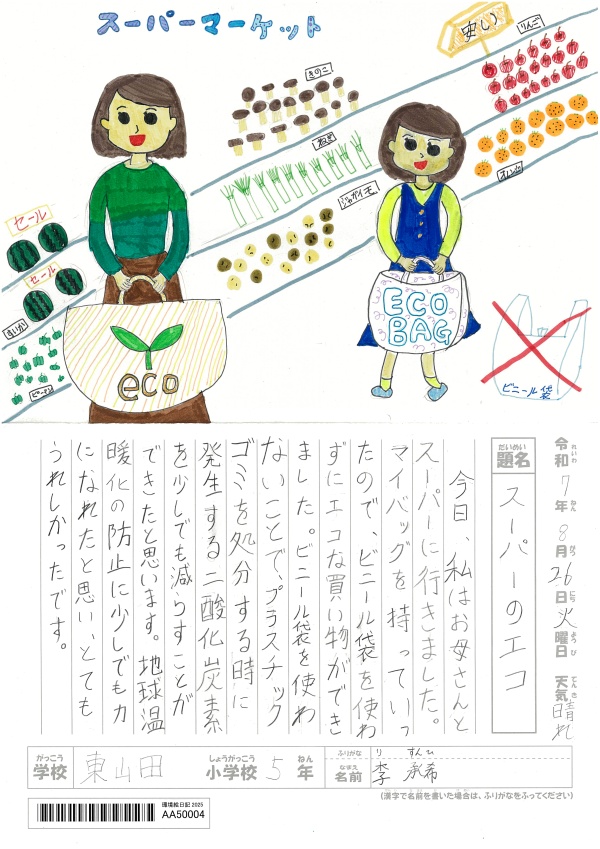 スーパーマーケット
安い
りんご
きのこ
ねぎ
オレンジ
じゃがイモ
セール
セール
すいか
ピーマン
eco
ECO
BAG
ビニール袋
令和7年8月26日火曜日 天気晴れ
れいわ ねん がつ にち ようび てんき
だいめい
題名
スーパーのエコ
今日、私はお母さんと
スーパーに行きました。
マイバッグを持っていっ
たので、ビニール袋を使わ
ずにエコな買い物ができ
ました。ビニール袋を使わ
ないことで、プラスチック
ゴミを処分する時に
発生する二酸化炭素
を少しでも減らすことが
できたと思います。地球温
暖化の防止に少しでも力
になれたと思い、とても
うれしかったです。
がっこう しょうがっこう ねん ふりがな り すんひ
学校 東山田 小学校 5年 なまえ 名前 李 承希
(漢字で名前を書いた場合は、ふりがなをふってください)
環境絵日記2025
AA50004